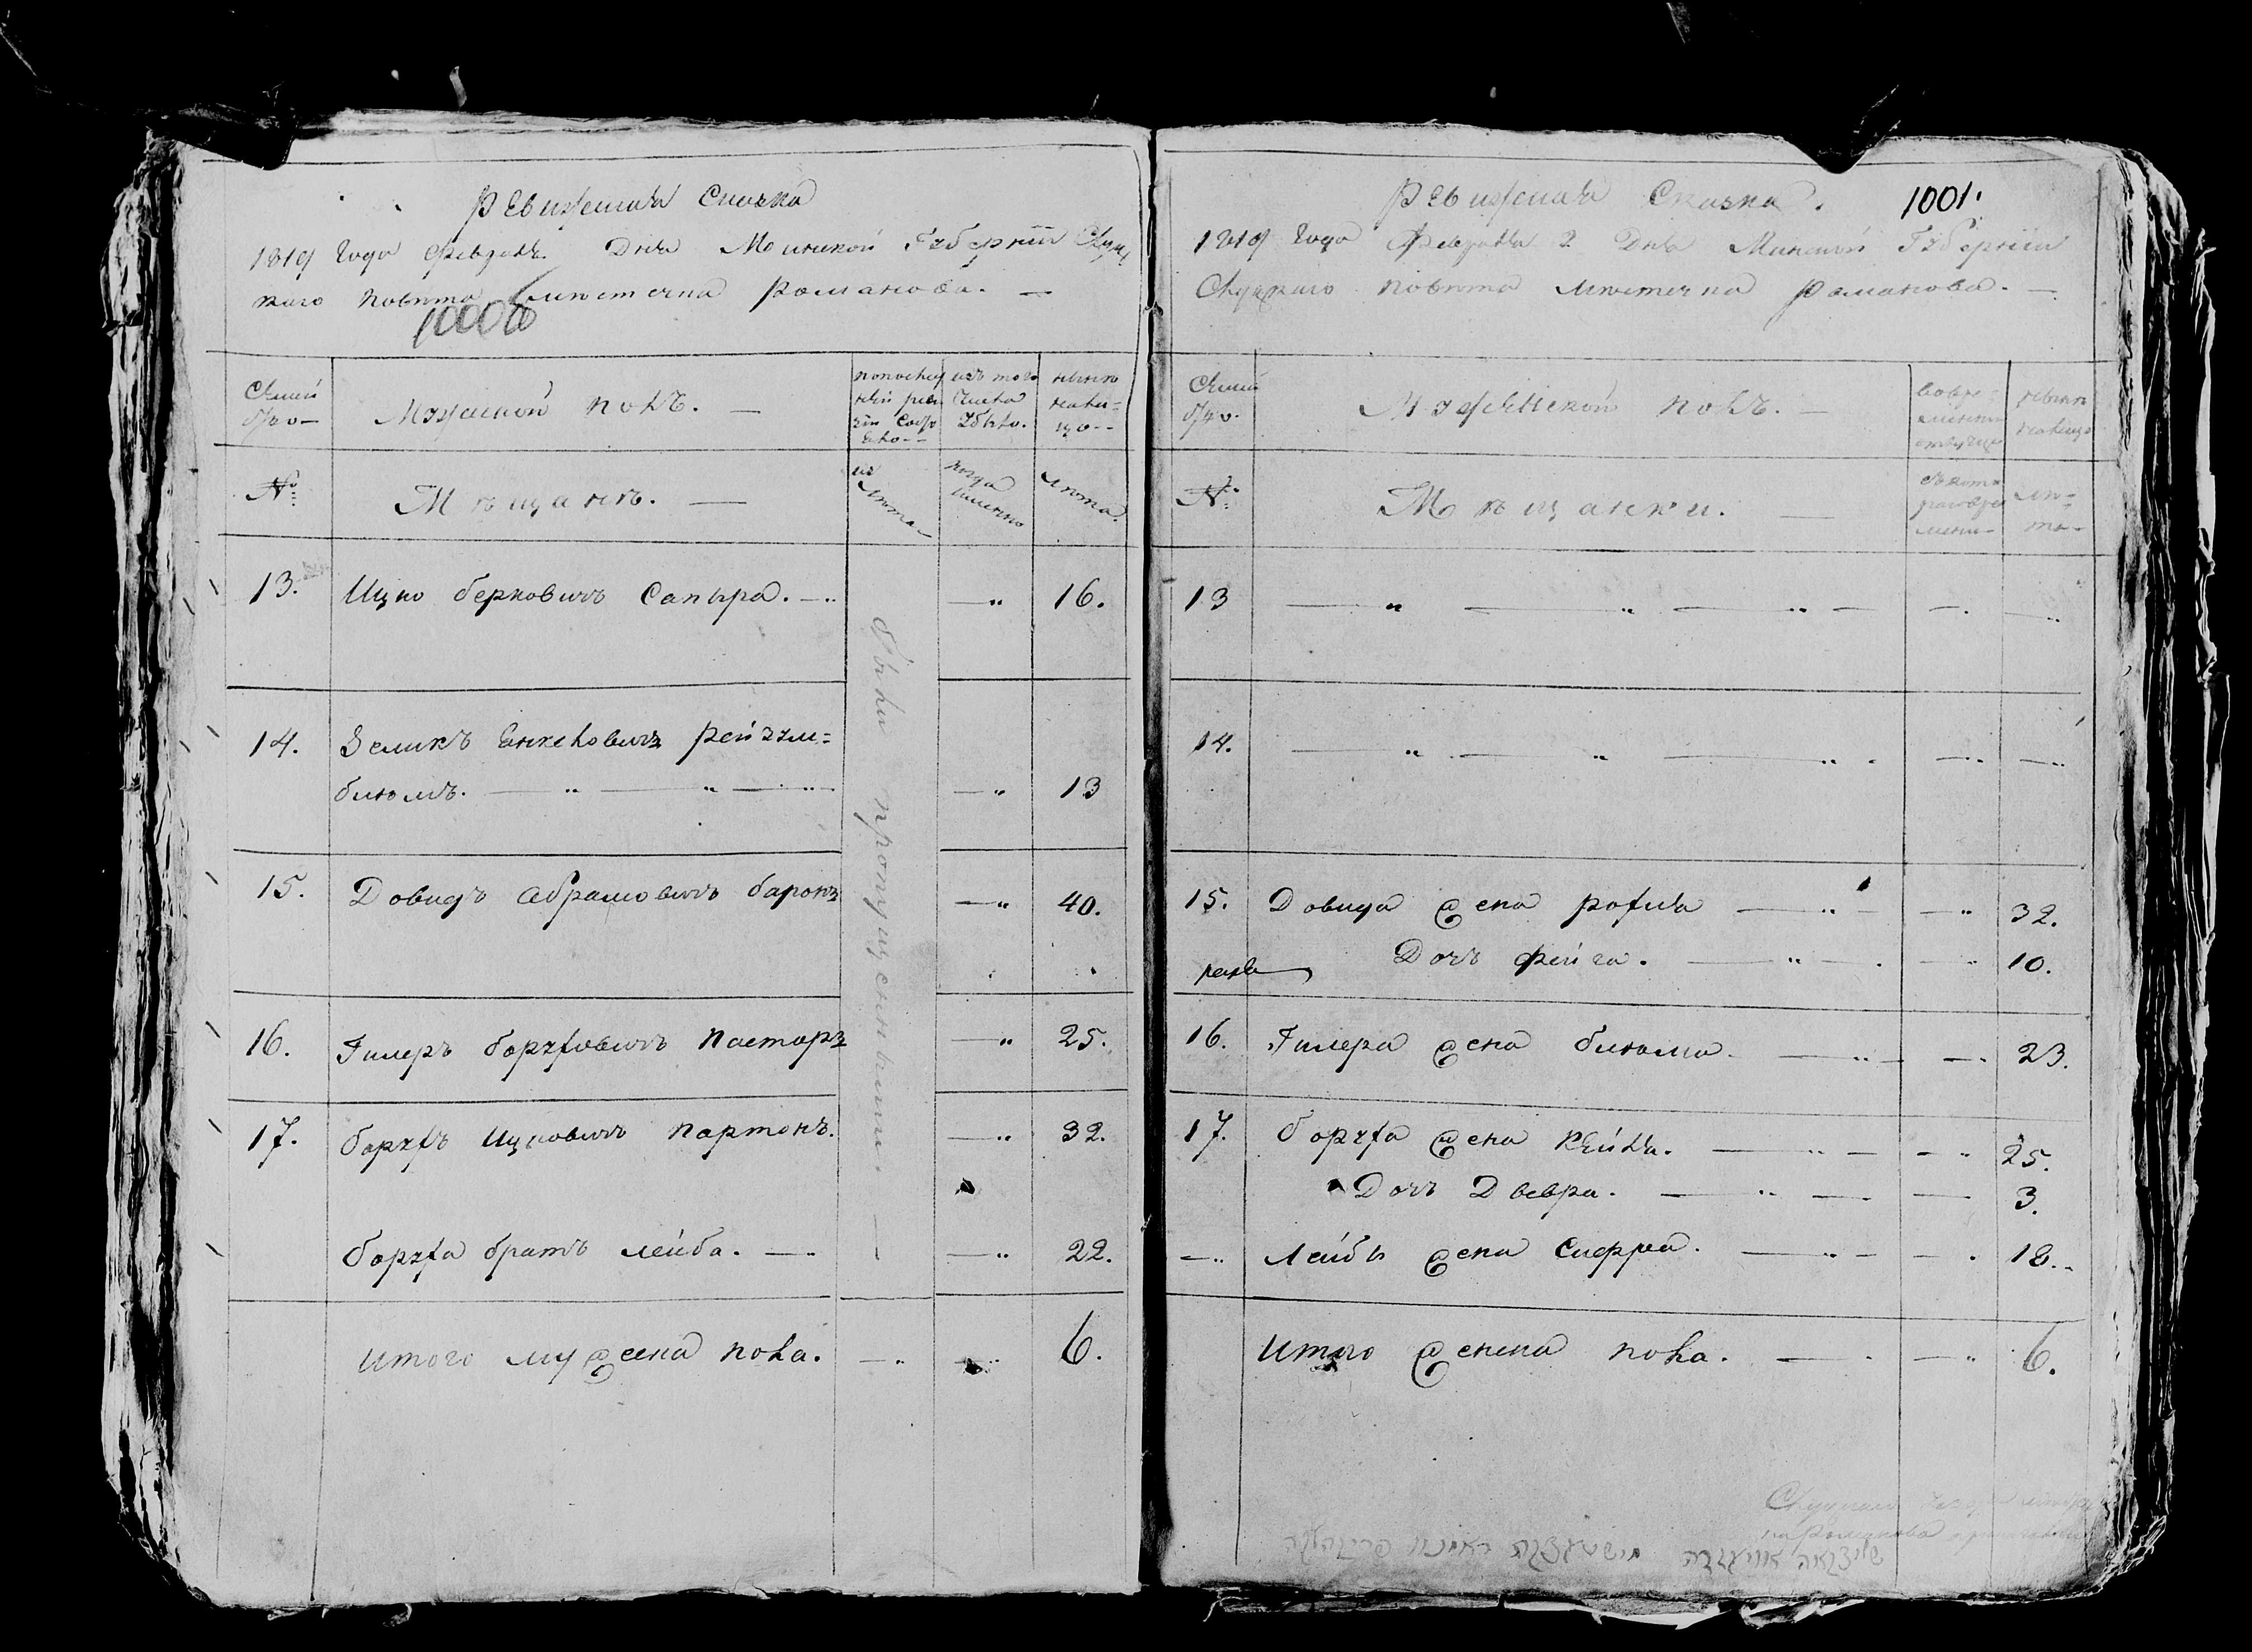 Ревизская Сказка
1819 Года Февраля Дня Минской Губернии Слуц
каго повѣта мѣстечка Романова. —
1000 об
Семьи
Мужеской полъ. —
по последней ревизіи состояло
изъ того числа убыло.
нынѣ на лицо
№
Мѣщанѣ. —
лѣта
когда именно
лѣта.
13. Ицко берковичъ Сапыра. — 16.
14. Зеликъ Енкеловичъ рейзим=
блюмъ. — „ — „ — „ 13
15. Довидъ Абрамовичъ баронъ — „ 40.
16. Гилеръ боруховичъ пасторъ — „ 25.
17. борухъ Ицковичъ партонъ. — „ 32.
боруха братъ лейба. — — „ 22.
были пропущенными. —
итого мужеска пола. — 6.
Ревизская Сказка. 1001.
1819 Года Февраля 2 Дня Минской Губерніи
Слуцкаго повѣта мѣстечка Романова. —
Семьи
Женской полъ. —
во временной отлучке
нынѣ на лицо
№
Мѣщанки. —
съ котораго времени
лѣ=
та
13 — „ — „ — „ —
14. — „ — „ — „
15. Довида жена рохля — „ — 32.
Дочь фейга. — „ — 10.
16. Гилера жена блюма. — „ — 23.
17. боруха жена Кейля. — „ — 25.
Дочь Двевра. — „ — 3.
— „ Лейбы жена Сифра. — „ — 18.
итого женска пола. — 6.